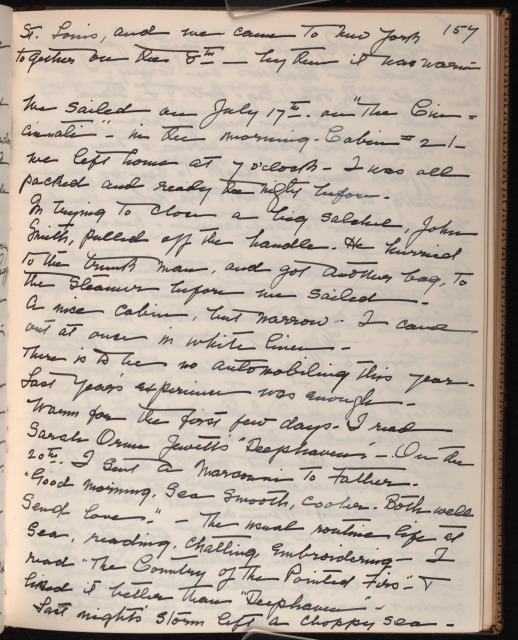 157
St. Louis, and we came to New York
together on the 8th — by then it was warm
We sailed on July 17th. on "The Cin=
cinnati" - in the morning. Cabin # 21 -
we left home at 7 o'clock - I was all
packed and ready the night before.
In trying to close a big satchel, John
Smith, pulled off the handle. He hurried
to the trunk man, and got another bag, to
the steamer before we sailed -
A nice cabin, but narrow - I came
out at once in white linen -
There is to be no automobiling this year -
Last year's experience was enough -
Warm for the first few days - I read
Sarah Orne Jewett's "Deephaven" - On the
20th. I sent a Marconi to Father.
"Good morning. Sea smooth, cooler. Both well
Send love." - The usual routine life at
sea, reading, chatting, embroidering - I
read "The Country of the Pointed Firs" - &
liked it better than "Deephaven" -
Last night's storm left a choppy sea -